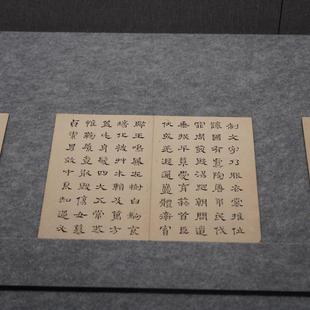 制文字乃服衣裳推位
讓國有虞陶唐弔民伐
罪周發殷湯坐朝問道
垂拱平章愛育黎首臣
伏戎羌遐邇壹體率賓
歸王鳴鳳在樹白駒食
場化被艸木賴及萬方
蓋此身髮四大五常恭
惟鞠養豈敢毀傷女慕
貞絜男效才良知過必